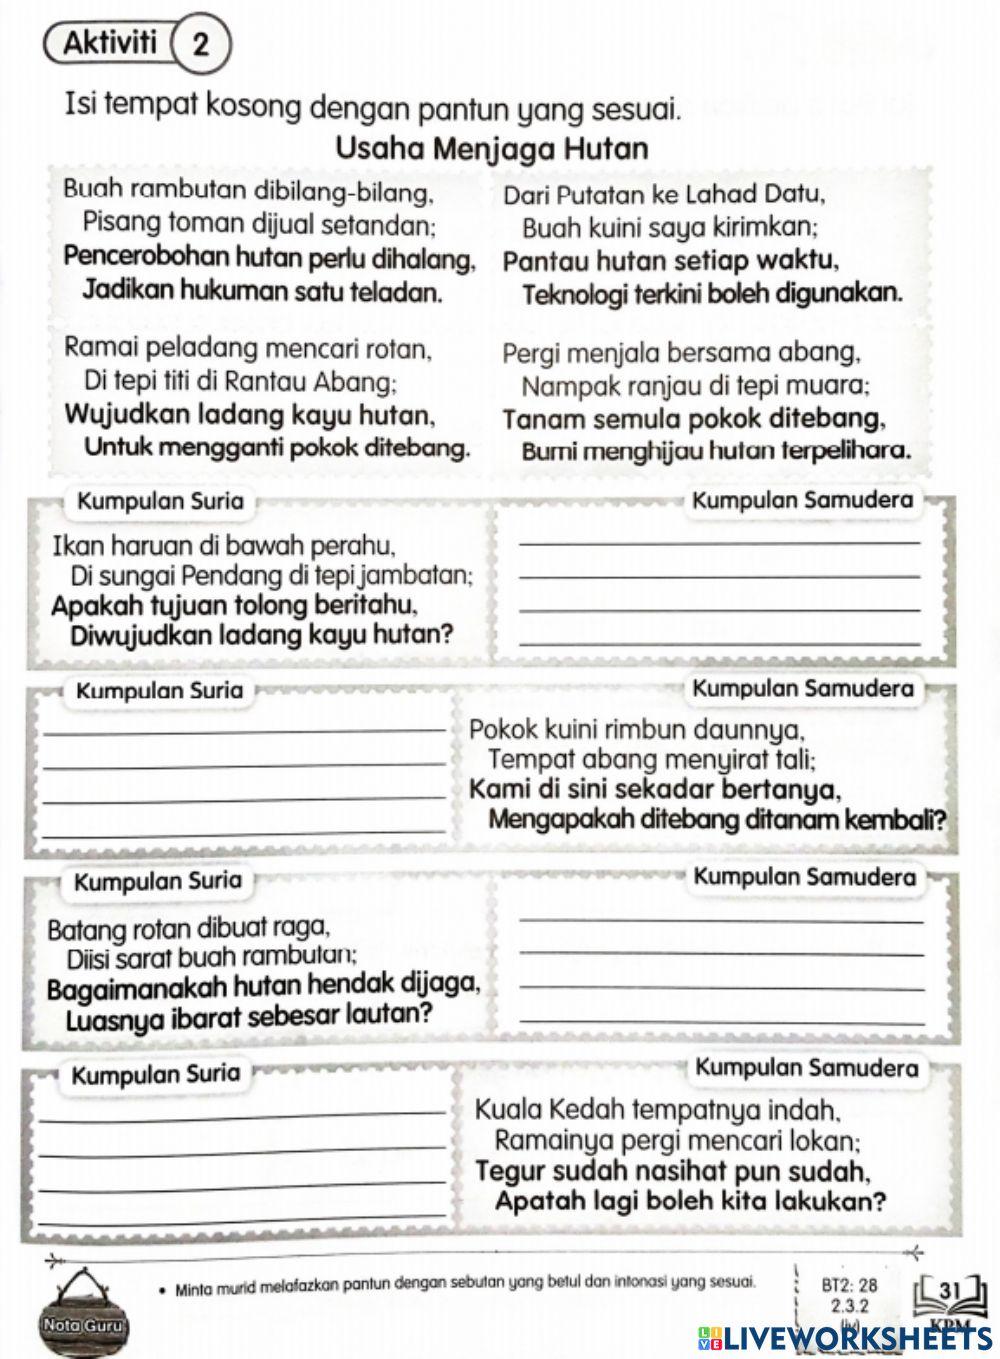 Aktiviti 2
Isi tempat kosong dengan pantun yang sesuai.
Usaha Menjaga Hutan
Buah rambutan dibilang-bilang,
Pisang toman dijual setandan;
Pencerobohan hutan perlu dihalang,
Jadikan hukuman satu teladan.
Dari Putatan ke Lahad Datu,
Buah kuini saya kirimkan;
Pantau hutan setiap waktu,
Teknologi terkini boleh digunakan.
Ramai peladang mencari rotan,
Di tepi titi di Rantau Abang;
Wujudkan ladang kayu hutan,
Untuk mengganti pokok ditebang.
Pergi menjala bersama abang,
Nampak ranjau di tepi muara;
Tanam semula pokok ditebang,
Bumi menghijau hutan terpelihara.
Kumpulan Suria
Ikan haruan di bawah perahu,
Di sungai Pendang di tepi jambatan;
Apakah tujuan tolong beritahu,
Diwujudkan ladang kayu hutan?
Kumpulan Samudera
Kumpulan Suria
Kumpulan Samudera
Pokok kuini rimbun daunnya,
Tempat abang menyirat tali;
Kami di sini sekadar bertanya,
Mengapakah ditebang ditanam kembali?
Kumpulan Suria
Batang rotan dibuat raga,
Diisi sarat buah rambutan;
Bagaimanakah hutan hendak dijaga,
Luasnya ibarat sebesar lautan?
Kumpulan Samudera
Kumpulan Suria
Kumpulan Samudera
Kuala Kedah tempatnya indah,
Ramainya pergi mencari lokan;
Tegur sudah nasihat pun sudah,
Apatah lagi boleh kita lakukan?
Nota Guru
• Minta murid melafazkan pantun dengan sebutan yang betul dan intonasi yang sesuai.
BT2: 28
2.3.2
(iv)
31
KPM
LIVE LIVEWORKSHEETS